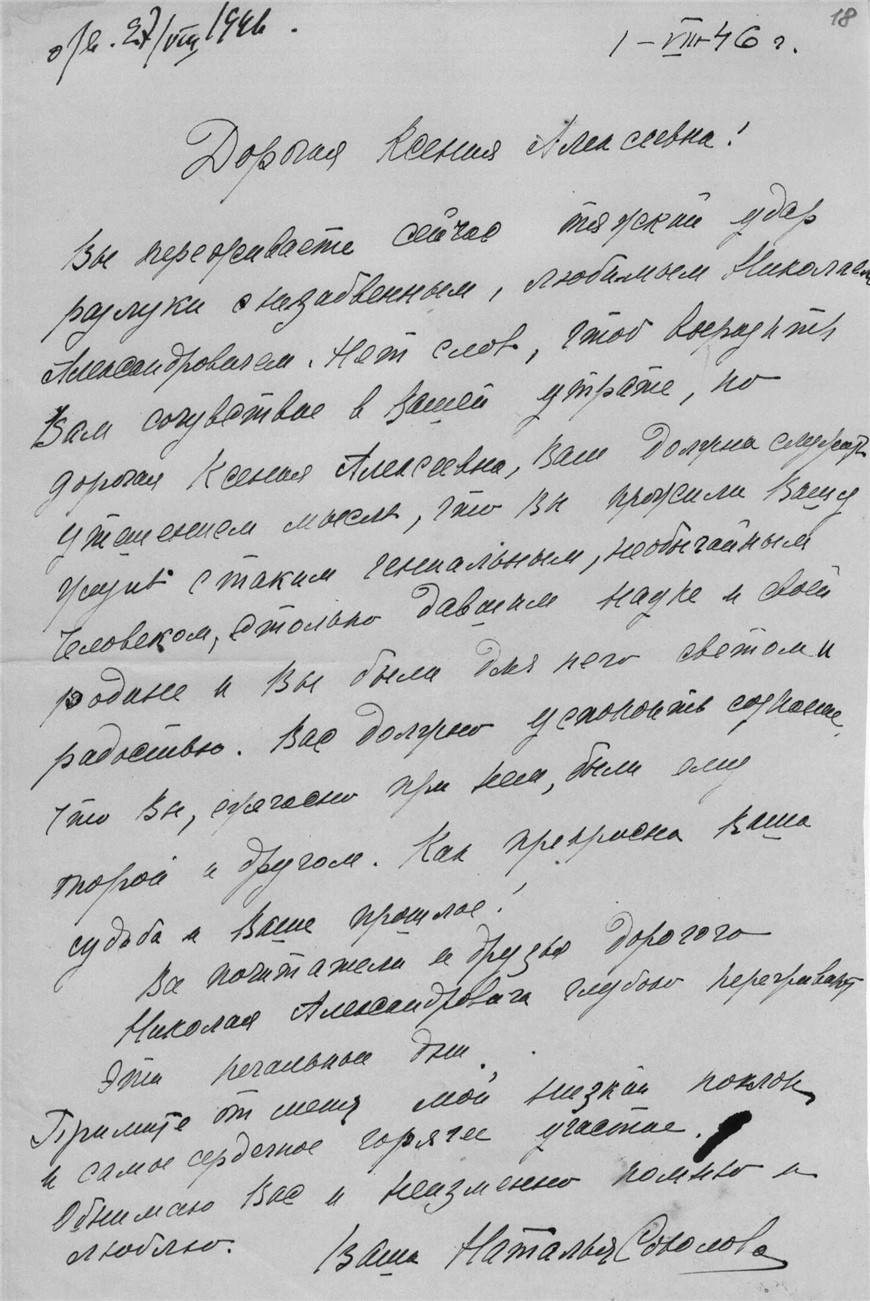 18
отв. 27/VIII 1946.
1-VIII-46 г.
Дорогая Ксения Алексеевна!
Вы переживаете сейчас тяжкий удар
разлуки с незабвенным, любимым Николаем
Александровичем. Нет слов, чтоб выразить
Вам сочувствие в Вашей утрате, но
дорогая Ксения Алексеевна, Вам должна служить
утешением мысль, что Вы прожили Вашу
жизнь с таким гениальным, необычайным
человеком, столько давшим науке и своей
родине и Вы были для него светом и
радостью. Вас должно успокоить сознание,
что Вы, ежечасно при нем, были ему
опорой и другом. Как прекрасна Ваша
судьба и Ваше прошлое!
Все почитатели и друзья дорогого
Николая Александровича глубоко переживают
эти печальные дни.
Примите от меня мой низкий поклон
и самое сердечное горячее участие.
Обнимаю Вас и неизменно помню и
люблю.
Ваша Наталья Соколова